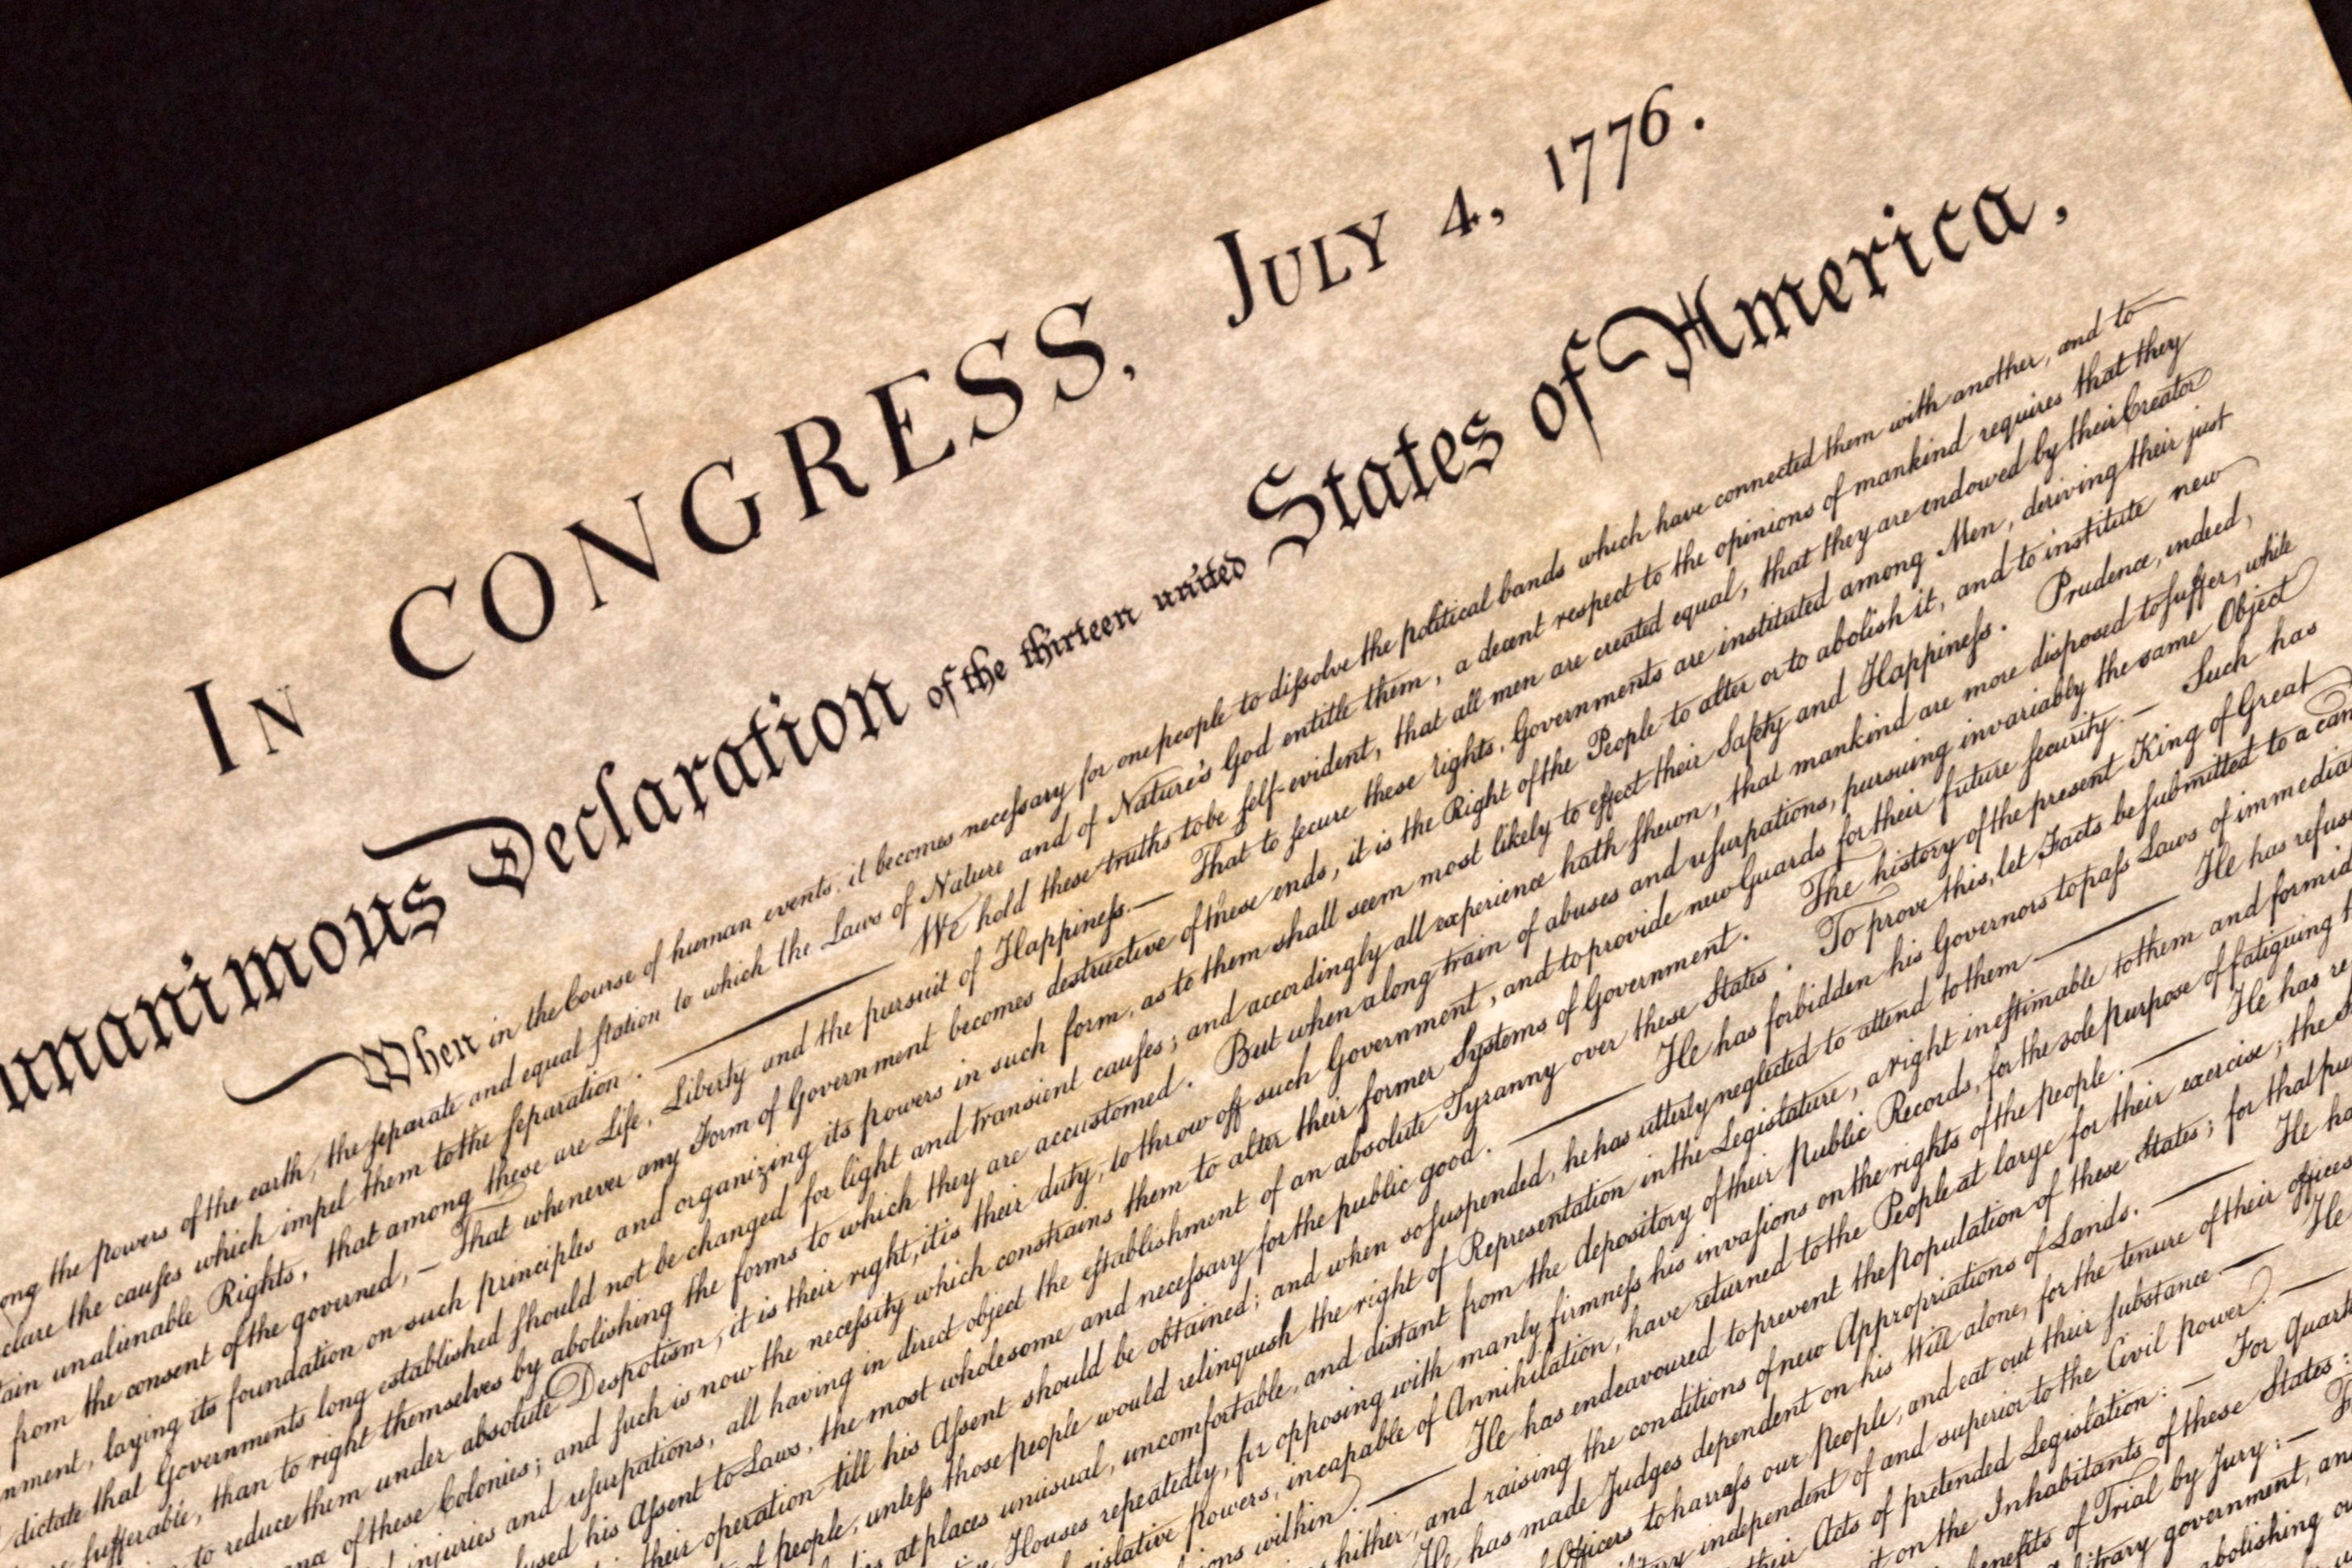 IN CONGRESS, JULY 4, 1776.
unanimous Declaration of the thirteen united States of America,
When in the Course of human events, it becomes necessary for one people to dissolve the political bands which have connected them with another, and to
ong the powers of the earth, the separate and equal station to which the Laws of Nature and of Nature's God entitle them, a decent respect to the opinions of mankind requires that they
clare the causes which impel them to the separation. — We hold these truths to be self-evident, that all men are created equal, that they are endowed by their Creator
tain unalienable Rights, that among these are Life, Liberty and the pursuit of Happiness.— That to secure these rights, Governments are instituted among Men, deriving their just
from the consent of the governed, — That whenever any Form of Government becomes destructive of these ends, it is the Right of the People to alter or to abolish it, and to institute new
nment, laying its foundation on such principles and organizing its powers in such form, as to them shall seem most likely to effect their Safety and Happiness. Prudence, indeed,
dictate that Governments long established should not be changed for light and transient causes; and accordingly all experience hath shewn, that mankind are more disposed to suffer, while
sufferable, than to right themselves by abolishing the forms to which they are accustomed. But when a long train of abuses and usurpations, pursuing invariably the same Object
to reduce them under absolute Despotism, it is their right, it is their duty, to throw off such Government, and to provide new Guards for their future security.— Such has
ance of these Colonies; and such is now the necessity which constrains them to alter their former Systems of Government. The history of the present King of Great
injuries and usurpations, all having in direct object the establishment of an absolute Tyranny over these States. To prove this, let Facts be submitted to a can
used his Assent to Laws, the most wholesome and necessary for the public good. — He has forbidden his Governors to pass Laws of immedia
their operation till his Assent should be obtained; and when so suspended, he has utterly neglected to attend to them — He has refus
of people, unless those people would relinquish the right of Representation in the Legislature, a right inestimable to them and formid
at places unusual, uncomfortable, and distant from the depository of their public Records, for the sole purpose of fatiguing t
Houses repeatedly, for opposing with manly firmness his invasions on the rights of the people. — He has re
gislative powers, incapable of Annihilation, have returned to the People at large for their exercise; the S
ions within. — He has endeavoured to prevent the population of these States; for that pur
hither, and raising the conditions of new Appropriations of Lands. — He ha
He has made Judges dependent on his Will alone, for the tenure of their offices
Officers to harrass our people, and eat out their substance. — He
independent of and superior to the Civil power. —
their Acts of pretended Legislation: — For Quart
on the Inhabitants of these States:
benefits of Trial by Jury: — F
bitrary government, an
abolishing o